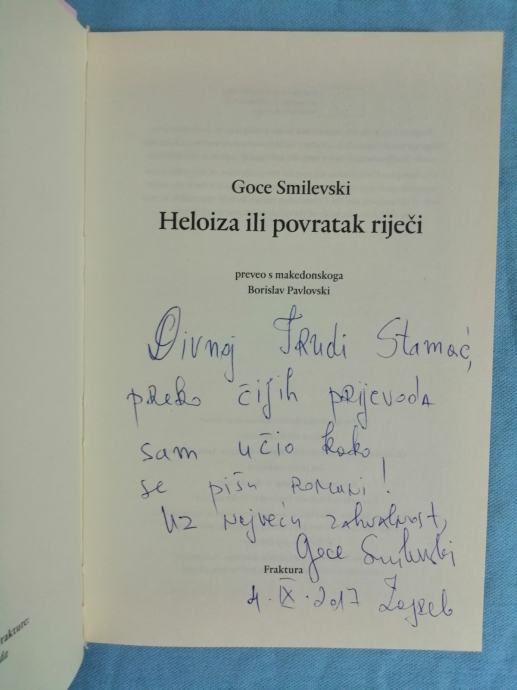 Goce Smilevski
Heloiza ili povratak riječi
preveo s makedonskoga
Borislav Pavlovski
Divnoj Trudi Stamać,
preko čijih prijevoda
sam učio kako
se pišu romani!
Uz najveću zahvalnost,
Goce Smilevski
Fraktura
4. IX. 2017 Zagreb
rakture: